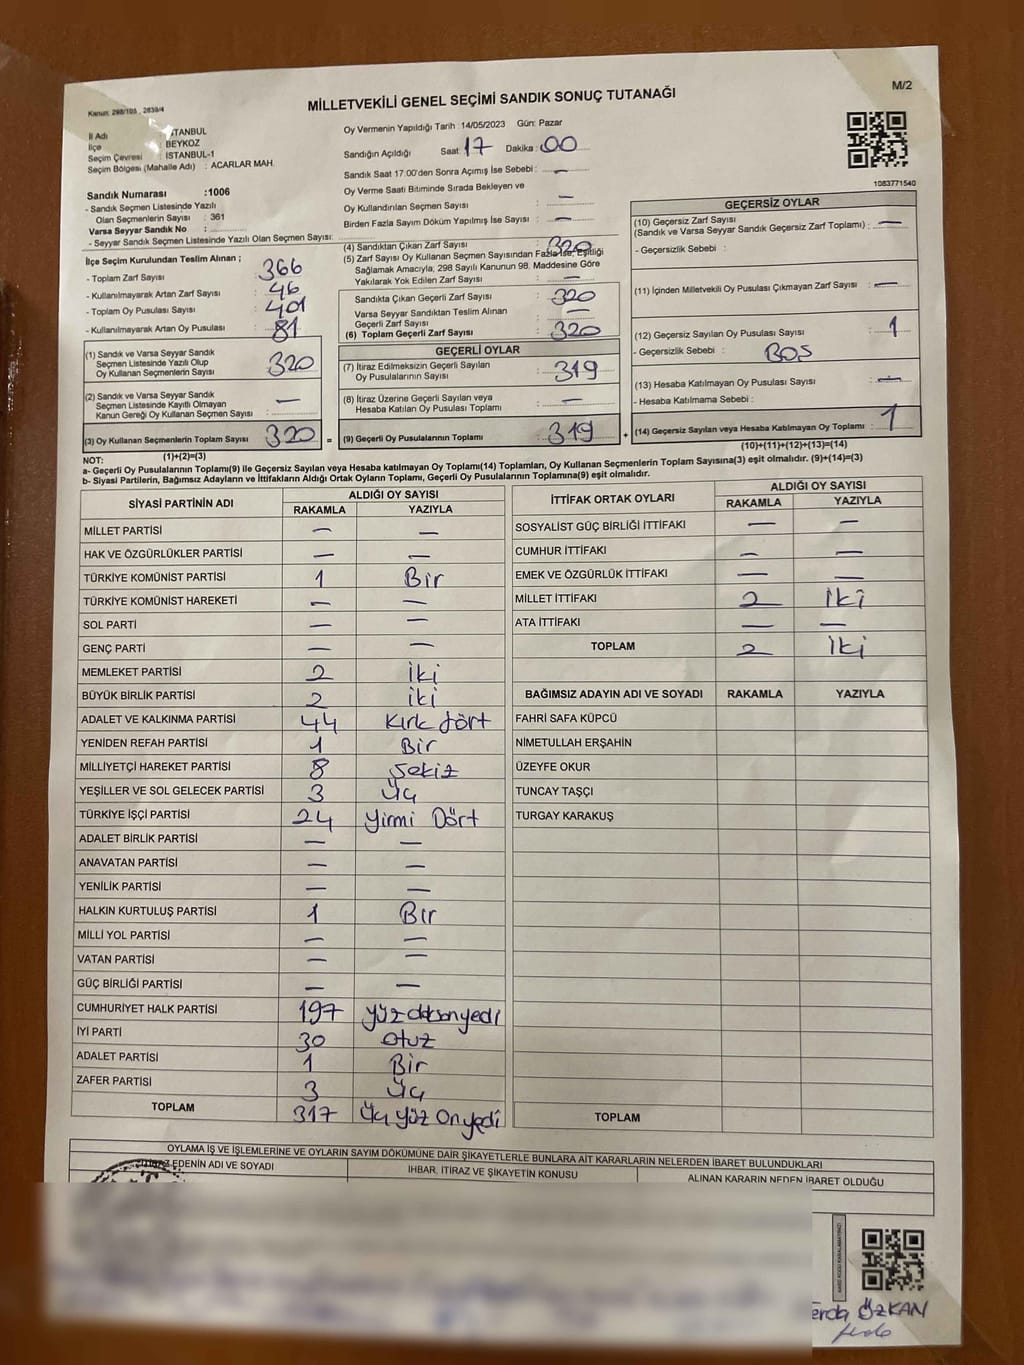 M/2
MİLLETVEKİLİ GENEL SEÇİMİ SANDIK SONUÇ TUTANAĞI
Kanun: 298/105 , 2839/4
İl Adı : İSTANBUL
İlçe : BEYKOZ
Seçim Çevresi : İSTANBUL-1
Seçim Bölgesi (Mahalle Adı) : ACARLAR MAH.
Oy Vermenin Yapıldığı Tarih :14/05/2023 Gün: Pazar
Sandığın Açıldığı Saat: 17 Dakika: 00
Sandık Saat 17:00'den Sonra Açımış İse Sebebi : —
Oy Verme Saati Bitiminde Sırada Bekleyen ve
Oy Kullandırılan Seçmen Sayısı : —
Birden Fazla Sayım Döküm Yapılmış İse Sayısı : —
1083771540
Sandık Numarası :1006
- Sandık Seçmen Listesinde Yazılı
Olan Seçmenlerin Sayısı : 361
Varsa Seyyar Sandık No :
- Seyyar Sandık Seçmen Listesinde Yazılı Olan Seçmen Sayısı:
İlçe Seçim Kurulundan Teslim Alınan ;
- Toplam Zarf Sayısı : 366
- Kullanılmayarak Artan Zarf Sayısı : 46
- Toplam Oy Pusulası Sayısı : 401
- Kullanılmayarak Artan Oy Pusulası : 81
(1) Sandık ve Varsa Seyyar Sandık
Seçmen Listesinde Yazılı Olup
Oy Kullanan Seçmenlerin Sayısı : 320
(2) Sandık ve Varsa Seyyar Sandık
Seçmen Listesinde Kayıtlı Olmayan
Kanun Gereği Oy Kullanan Seçmen Sayısı : —
(3) Oy Kullanan Seçmenlerin Toplam Sayısı : 320
(1)+(2)=(3)
(4) Sandıktan Çıkan Zarf Sayısı : 320
(5) Zarf Sayısı Oy Kullanan Seçmen Sayısından Fazla İse, Eşitliği
Sağlamak Amacıyla, 298 Sayılı Kanunun 98. Maddesine Göre
Yakılarak Yok Edilen Zarf Sayısı : —
Sandıkta Çıkan Geçerli Zarf Sayısı : 320
Varsa Seyyar Sandıktan Teslim Alınan
Geçerli Zarf Sayısı : —
(6) Toplam Geçerli Zarf Sayısı : 320
GEÇERLİ OYLAR
(7) İtiraz Edilmeksizin Geçerli Sayılan
Oy Pusulalarının Sayısı : 319
(8) İtiraz Üzerine Geçerli Sayılan veya
Hesaba Katılan Oy Pusulası Toplamı : —
= (9) Geçerli Oy Pusulalarının Toplamı : 319 +
GEÇERSİZ OYLAR
(10) Geçersiz Zarf Sayısı
(Sandık ve Varsa Seyyar Sandık Geçersiz Zarf Toplamı) : —
- Geçersizlik Sebebi :
(11) İçinden Milletvekili Oy Pusulası Çıkmayan Zarf Sayısı : —
(12) Geçersiz Sayılan Oy Pusulası Sayısı : 1
- Geçersizlik Sebebi : BOŞ
(13) Hesaba Katılmayan Oy Pusulası Sayısı : —
- Hesaba Katılmama Sebebi :
(14) Geçersiz Sayılan veya Hesaba Katılmayan Oy Toplamı : 1
(10)+(11)+(12)+(13)=(14)
NOT:
a- Geçerli Oy Pusulalarının Toplamı(9) ile Geçersiz Sayılan veya Hesaba katılmayan Oy Toplamı(14) Toplamları, Oy Kullanan Seçmenlerin Toplam Sayısına(3) eşit olmalıdır. (9)+(14)=(3)
b- Siyasi Partilerin, Bağımsız Adayların ve İttifakların Aldığı Ortak Oyların Toplamı, Geçerli Oy Pusulalarının Toplamına(9) eşit olmalıdır.
SİYASİ PARTİNİN ADI ALDIĞI OY SAYISI
RAKAMLA YAZIYLA
MİLLET PARTİSİ — —
HAK VE ÖZGÜRLÜKLER PARTİSİ — —
TÜRKİYE KOMÜNİST PARTİSİ 1 Bir
TÜRKİYE KOMÜNİST HAREKETİ — —
SOL PARTİ — —
GENÇ PARTİ — —
MEMLEKET PARTİSİ 2 iki
BÜYÜK BİRLİK PARTİSİ 2 iki
ADALET VE KALKINMA PARTİSİ 44 Kırk dört
YENİDEN REFAH PARTİSİ 1 Bir
MİLLİYETÇİ HAREKET PARTİSİ 8 Sekiz
YEŞİLLER VE SOL GELECEK PARTİSİ 3 Üç
TÜRKİYE İŞÇİ PARTİSİ 24 Yirmi Dört
ADALET BİRLİK PARTİSİ — —
ANAVATAN PARTİSİ — —
YENİLİK PARTİSİ — —
HALKIN KURTULUŞ PARTİSİ 1 Bir
MİLLİ YOL PARTİSİ — —
VATAN PARTİSİ — —
GÜÇ BİRLİĞİ PARTİSİ — —
CUMHURİYET HALK PARTİSİ 197 yüz doksanyedi
İYİ PARTİ 30 otuz
ADALET PARTİSİ 1 Bir
ZAFER PARTİSİ 3 Üç
TOPLAM 317 Üç yüz Onyedi
İTTİFAK ORTAK OYLARI ALDIĞI OY SAYISI
RAKAMLA YAZIYLA
SOSYALİST GÜÇ BİRLİĞİ İTTİFAKI — —
CUMHUR İTTİFAKI — —
EMEK VE ÖZGÜRLÜK İTTİFAKI — —
MİLLET İTTİFAKI 2 iki
ATA İTTİFAKI — —
TOPLAM 2 iki
BAĞIMSIZ ADAYIN ADI VE SOYADI RAKAMLA YAZIYLA
FAHRİ SAFA KÜPCÜ
NİMETULLAH ERŞAHİN
ÜZEYFE OKUR
TUNCAY TAŞÇI
TURGAY KARAKUŞ
TOPLAM
OYLAMA İŞ VE İŞLEMLERİNE VE OYLARIN SAYIM DÖKÜMÜNE DAİR ŞİKAYETLERLE BUNLARA AİT KARARLARIN NELERDEN İBARET BULUNDUKLARI
EDENİN ADI VE SOYADI İHBAR, İTİRAZ VE ŞİKAYETİN KONUSU ALINAN KARARIN NEDEN İBARET OLDUĞU
ÖZKAN